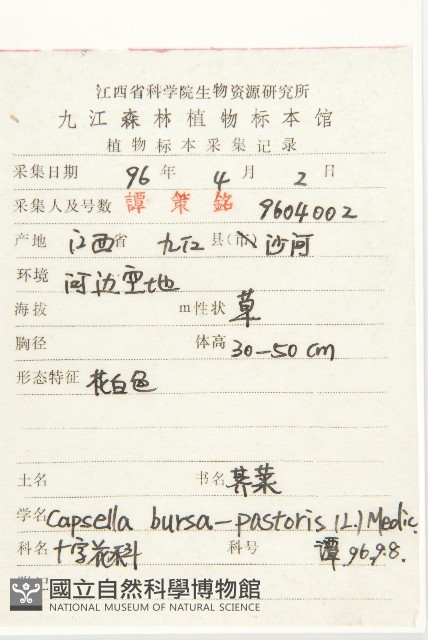 江西省科学院生物资源研究所
九江森林植物标本馆
植物标本采集记录
采集日期 96 年 4 月 2 日
采集人及号数 譚策銘 9604002
产地 江西省 九江县(市) 沙河
环境 河边空地
海拔 m性状 草
胸径 体高 30-50 cm
形态特征 花白色
土名 书名 荠菜
学名 Capsella bursa-pastoris (L.) Medic.
科名 十字花科 科号 譚 96.9.8.
國立自然科學博物館
NATIONAL MUSEUM OF NATURAL SCIENCE